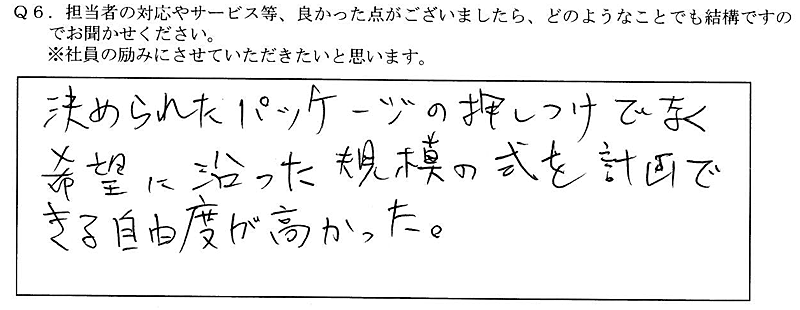 Q６．担当者の対応やサービス等、良かった点がございましたら、どのようなことでも結構ですの
でお聞かせください。
※社員の励みにさせていただきたいと思います。
決められたパッケージの押しつけでなく
希望に沿った規模の式を計画で
きる自由度が高かった。